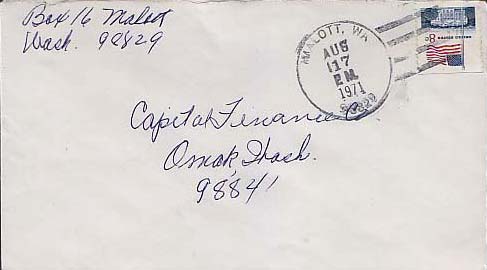 Box 16 Malott
Wash. 98829
MALOTT, WA
AUG
17
PM
1971
98829
8c
Capital Finance Co.
Omak, Wash.
98841